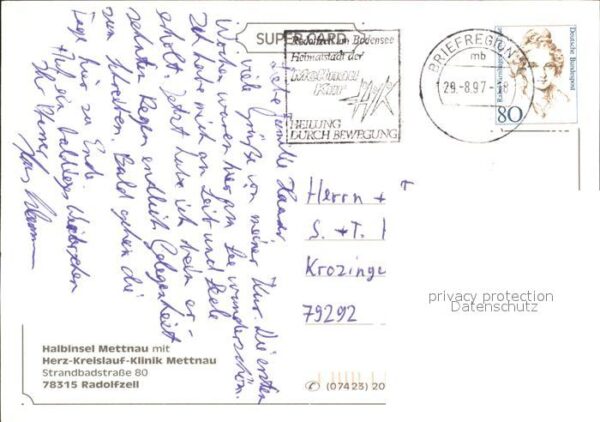 SUPER CARD
Radolfzell am Bodensee
Heimatstadt der
Mettnau
Kur
HEILUNG
DURCH BEWEGUNG
BRIEFREGION
mb
29.-8.97
Deutsche Bundespost
80
Liebe Familie
viele Grüße von meiner Kur. Die ersten
Wochen waren hier am See wunderschön.
Ich habe mich an Leib und Seele
erholt. Jetzt habe ich beim
Regen endlich Gelegenheit
zum Schreiben. Bald gehen die
Tage hier zu Ende.
Auf ein baldiges Wiedersehen
Herrn
S. + T.
Krozinge
79292
privacy protection
Datenschutz
Halbinsel Mettnau mit
Herz-Kreislauf-Klinik Mettnau
Strandbadstraße 80
78315 Radolfzell
(07423) 20